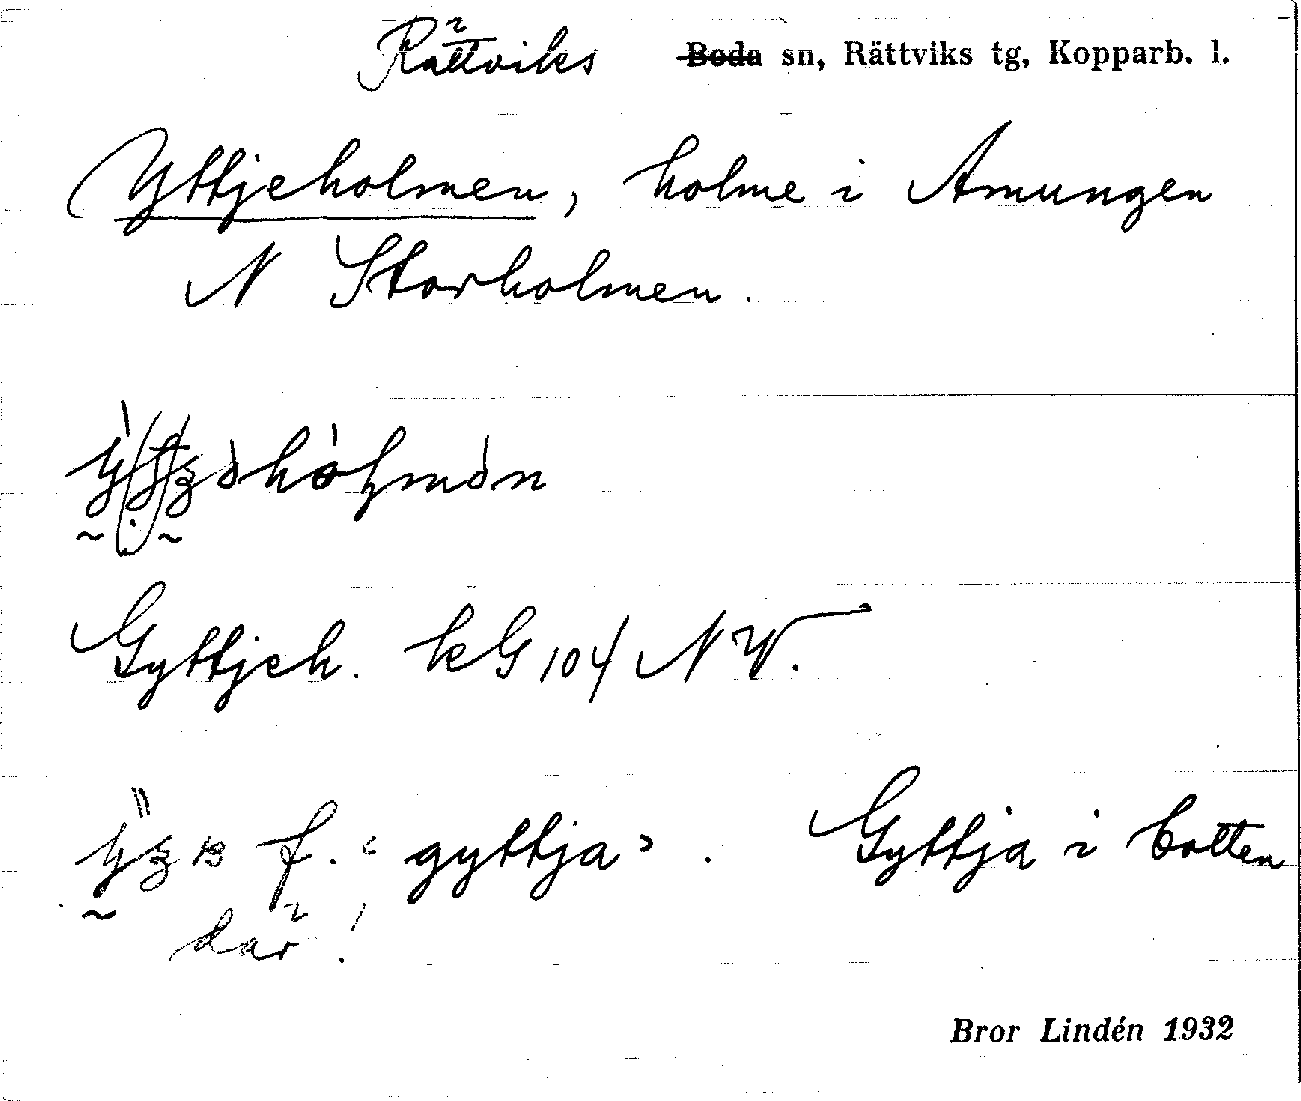 Rättviks Boda sn, Rättviks tg, Kopparb. l.
Yttjeholmen, holme i Amungen
N Storholmen.
Gyttjeh. kG 104 NV.
f. "gyttja". Gyttja i botten
där!
Bror Lindén 1932